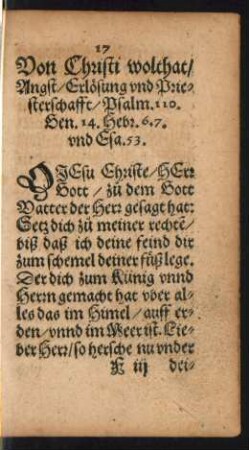 17
Von Christi wolthat/
Angst/ Erlösung vnd Prie-
sterschafft/ Psalm. 110.
Gen. 14. Hebr. 6. 7.
vnd Esa. 53.
O JEsu Christe/ HErr
Gott / zů dem Gott
Vatter der Herr gesagt hat:
Setz dich zů meiner rechtẽ/
biß daß ich deine feind dir
zum schemel deiner fůß lege.
Der dich zum Künig vnnd
Herrn gemacht hat vber al-
les das im Himel / auff er-
den / vnnd im Meer ist. Lie-
ber Herr/ so hersche nu vnder
iij dei-